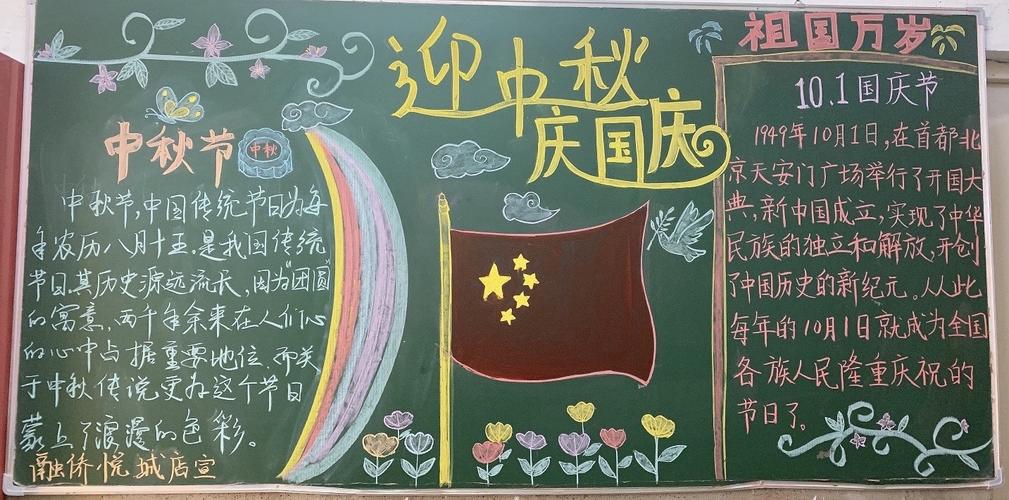 迎中秋
庆国庆
中秋节
中秋
中秋节,中国传统节日为每
年农历八月十五.是我国传统
节日.其历史源远流长,因为“团圆”
的寓意,两千年余来在人们心
的心中占据重要地位.而关
于中秋传说更为这个节日
蒙上了浪漫的色彩。
融侨悦城店宣
祖国万岁
10.1国庆节
1949年10月1日,在首都北
京天安门广场举行了开国大
典,新中国成立,实现了中华
民族的独立和解放,开创
了中国历史的新纪元。从从此
每年的10月1日就成为全国
各族人民隆重庆祝的
节日了。